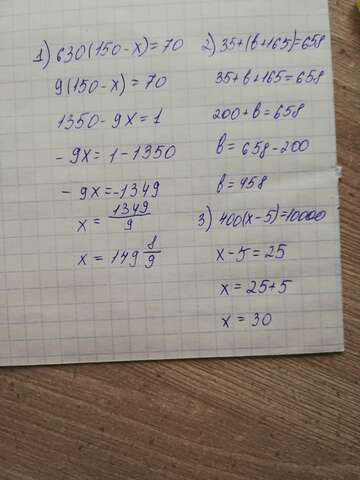 1) 630(150-x)=70
9(150-x)=70
1350-9x=1
-9x=1-1350
-9x=-1349
x=1349/9
x=149 8/9
2) 35+(b+165)=658
35+b+165=658
200+b=658
b=658-200
b=458
3) 400(x-5)=10000
x-5=25
x=25+5
x=30